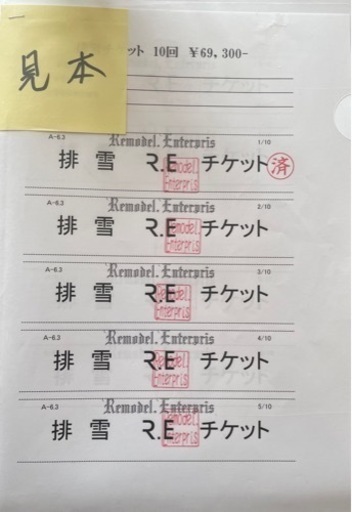 見本
ット 10回 ¥69,300-
A-6.3 Remodel.Enterpris 1/10
排雪 R.E チケット 済
Remodel. Enterpris
A-6.3 Remodel.Enterpris 2/10
排雪 R.E チケット
Remodel. Enterpris
A-6.3 Remodel.Enterpris 3/10
排雪 R.E チケット
Remodel Enterpris
A-6.3 Remodel.Enterpris 4/10
排雪 R.E チケット
Remodel Enterpris
A-6.3 Remodel.Enterpris 5/10
排雪 R.E チケット
Remodel. Enterpris